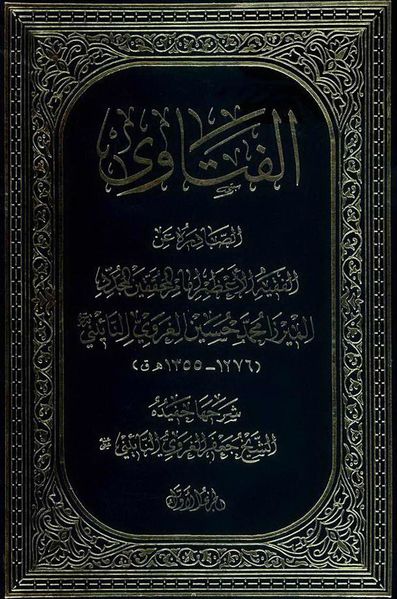 الفتاوى
الصادرة عن
الفقيه الأعظم إمام المحققين المجدد
الميرزا محمد حسين الغروي النائيني
(١٢٧٦ - ١٣٥٥ هـ ق)
شرحها حفيده
الشيخ جعفر الغروي النائيني
الجزء الأول